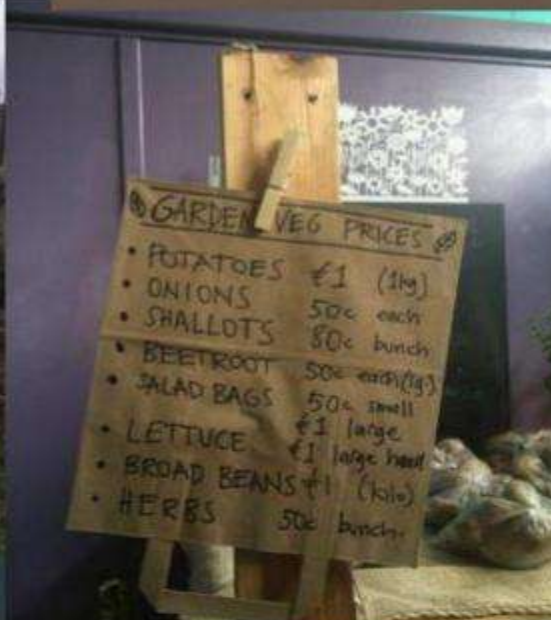 GARDEN VEG PRICES
• POTATOES €1 (1kg)
• ONIONS 50c each
• SHALLOTS 80c bunch
• BEETROOT 50c each (lg.)
• SALAD BAGS 50c small
€1 large
• LETTUCE €1 large head
• BROAD BEANS €1 (kilo)
• HERBS 50c bunch.